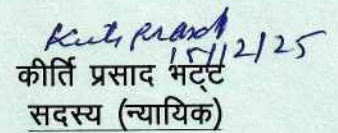 Kirti Prasad
15/12/25
कीर्ति प्रसाद भट्ट
सदस्य (न्यायिक)